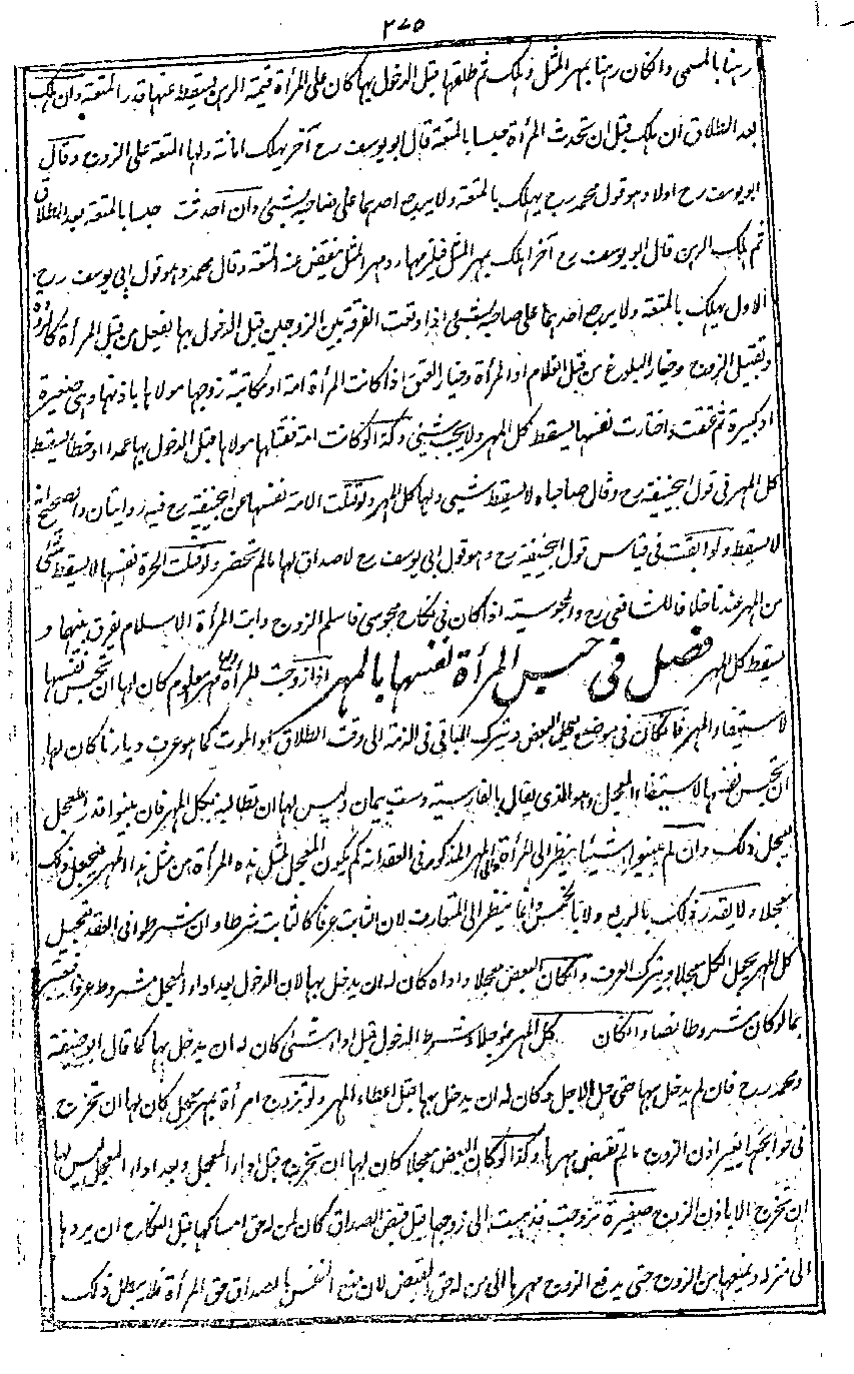 ٢٧٥
رهنا بالمسمى وان كان رهنا بمهر المثل وهلك ثم طلقها قبل الدخول بها كان على المرأة قيمة الرهن يسقط عنها قدر المتعة وان هلك
بعد الطلاق ان هلك قبل ان تحدث المرأة حبسا بالمتعة قال ابو يوسف رح آخر يهلك امانة ولها المتعة على الزوج وقال
ابو يوسف رح اولا وهو قول محمد رح يهلك بالمتعة ولا يرجع احدهما على صاحبه بشيئ وان احدثت حبسا بالمتعة بعد الطلاق
ثم هلك الرهن قال ابو يوسف رح آخرا هلك بمهر المثل فيلزمها رد مهر المثل ينقض عنه المتعة وقال محمد وهو قول ابى يوسف رح
الاول يهلك بالمتعة ولا يرجع احدهما على صاحبه بشيئ اذا وقعت الفرقة بين الزوجين قبل الدخول بها بفعل من قبل المرأة كالردة
وتقبيل الزوج وخيار البلوغ من قبل الغلام او المرأة وخيار العتق اذا كانت المرأة امة او مكاتبة زوجها مولاها باذنها وهى صغيرة
او كبيرة ثم عتقت واختارت نفسها يسقط كل المهر ولا يجب شيئ وكذا لو كانت امة فقتلها مولاها قبل الدخول بها عمدا او خطأ يسقط
كل المهر فى قول ابيحنيفة رح وقال صاحباه لا يسقط شيئ ولها كل المهر ولو قتلت الامة نفسها عن ابيحنيفة رح فيه روايتان والصحيح انه
لا يسقط ولو ابقت فى قياس قول ابيحنيفة رح وهو قول ابى يوسف رح لا صداق لها مالم تحضر ولو قتلت الحرة نفسها لا يسقط شيئ
من المهر عندنا خلافا للشافعى رح والمجوسية اذا كان فى نكاح مجوسى فاسلم الزوج وابت المرأة الاسلام يفرق بينهما و
يسقط كل المهر فصل فى حبس المرأة نفسها بالمهر اذا زوجت المرأة بمهر معلوم كان لها ان تحبس نفسها
لاستيفاء المهر فان كان فى موضع يعجل البعض ويترك الباقى فى الذمة الى وقت الطلاق او الموت كما هو عرف ديارنا كان لها
ان تحبس نفسها لاستيفاء المعجل وهو الذى يقال بالفارسية دست پيمان وليس لها ان تطالبه بكل المهر فان بينوا قدر المعجل
يعجل ذلك وان لم يبينوا شيئا ينظر الى المرأة والى المهر المذكور فى العقد انه كم يكون المعجل لمثل هذه المرأة من مثل هذا المهر فيجعل ذلك
معجلا ولا يقدر ذلك بالربع ولا بالخمس وانما ينظر الى المتعارف لان الثابت عرفا كالثابت شرطا وان شرطوا فى العقد تعجيل
كل المهر يجعل الكل معجلا ويترك العرف وان كان البعض معجلا واداه كان له ان يدخل بها لان الدخول بعد اداء المعجل مشروط عرفا فيعتبر
بما لو كان مشروطا نصا وان كان كل المهر مؤجلا وشرط الدخول قبل اداء شئ كان له ان يدخل بها كما قال ابو حنيفة
ومحمد رح فان لم يدخل بها حتى حل الاجل وكان له ان يدخل بها قبل اعطاء المهر ولو تزوج امرأة بمهر معجل كان لها ان تخرج
فى حوائجها بغير اذن الزوج مالم تقبض مهرها وكذا لو كان البعض معجلا كان لها ان تخرج قبل اداء المعجل وبعد اداء المعجل ليس لها
ان تخرج الا باذن الزوج صغيرة تزوجت فذهبت الى زوجها قبل قبض الصداق كان لمن له حق امساكها قبل النكاح ان يردها
الى منزله ويمنعها من الزوج حتى يدفع الزوج مهرها الى من له حق القبض لان منع النفس بالصداق حق المرأة فلا يبطل ذلك